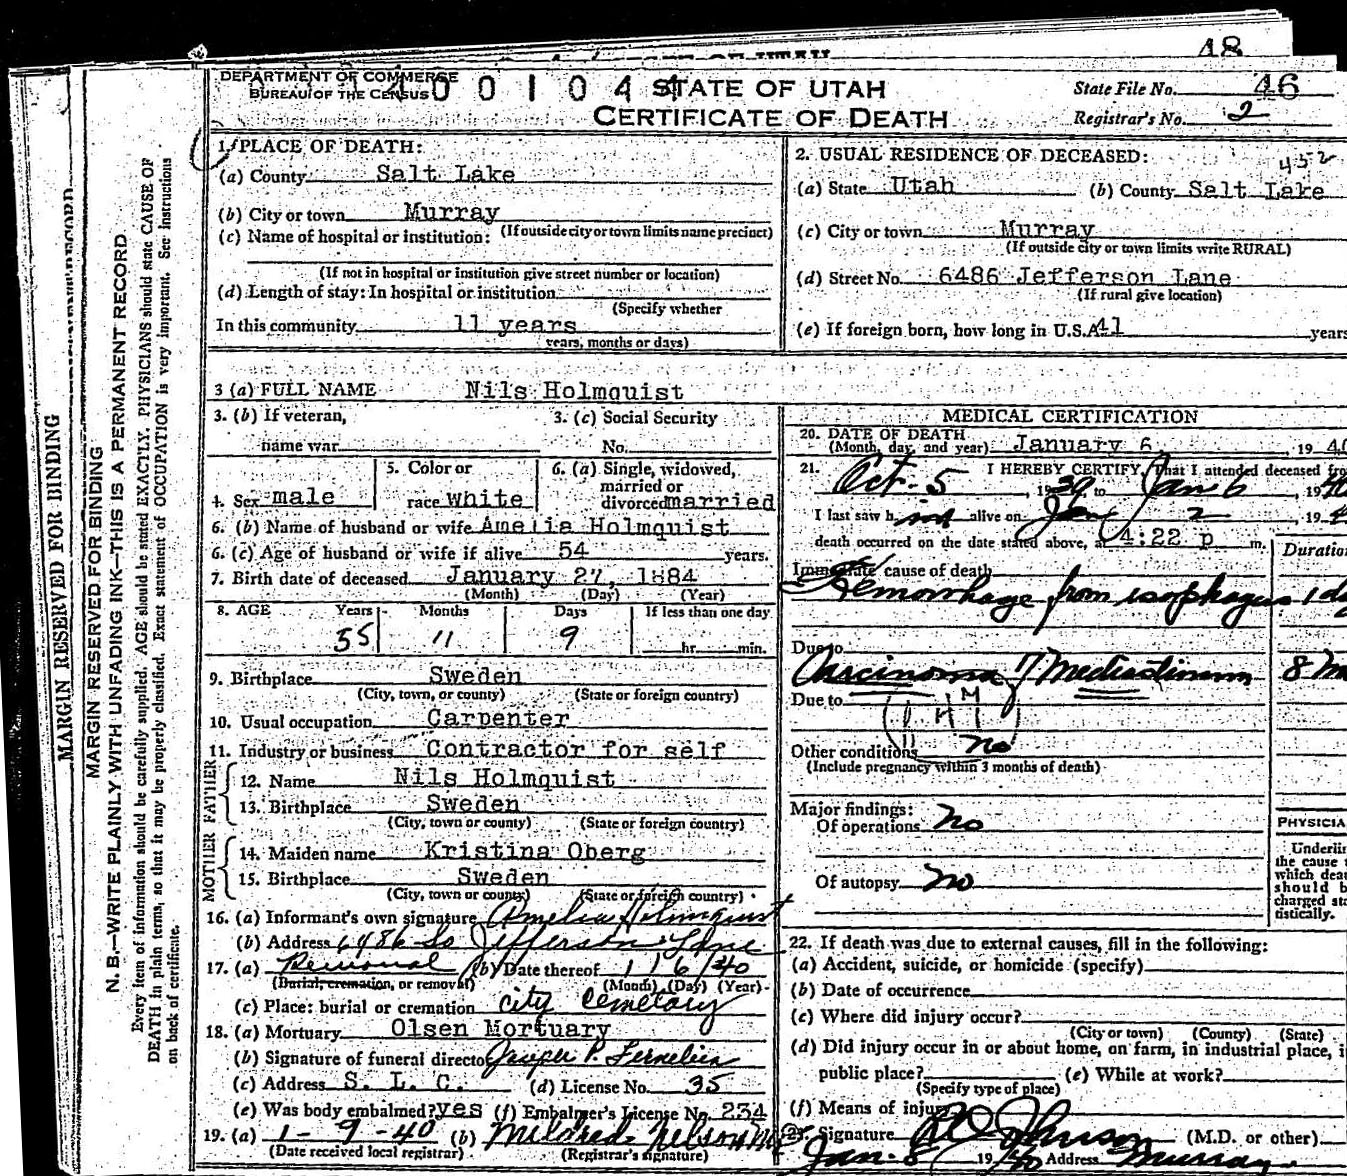 48
DEPARTMENT OF COMMERCE
BUREAU OF THE CENSUS
4 0 0 1 0 4 4
STATE OF UTAH
CERTIFICATE OF DEATH
State File No. 46
Registrar's No. 2
1. PLACE OF DEATH:
(a) County Salt Lake
(b) City or town Murray
(If outside city or town limits name precinct)
(c) Name of hospital or institution:
(If not in hospital or institution give street number or location)
(d) Length of stay: In hospital or institution
(Specify whether
In this community 11 years
years, months or days)
2. USUAL RESIDENCE OF DECEASED: 452
(a) State Utah (b) County Salt Lake
(c) City or town Murray
(If outside city or town limits write RURAL)
(d) Street No. 6486 Jefferson Lane
(If rural give location)
(e) If foreign born, how long in U.S.A. 41 years
3 (a) FULL NAME Nils Holmquist
3. (b) If veteran,
name war
3. (c) Social Security
No.
4. Sex male
5. Color or
race white
6. (a) Single, widowed,
married or
divorced married
6. (b) Name of husband or wife Amelia Holmquist
6. (c) Age of husband or wife if alive 54 years.
7. Birth date of deceased January 27, 1884
(Month) (Day) (Year)
8. AGE Years Months Days If less than one day
55 11 9 hr. min.
9. Birthplace Sweden
(City, town, or county) (State or foreign country)
10. Usual occupation Carpenter
11. Industry or business Contractor for self
FATHER
12. Name Nils Holmquist
13. Birthplace Sweden
(City, town or county) (State or foreign country)
MOTHER
14. Maiden name Kristina Oberg
15. Birthplace Sweden
(City, town or county) (State or foreign country)
16. (a) Informant's own signature Amelia Holmquist
(b) Address 6486 So Jefferson Lane
17. (a) Removal (b) Date thereof 1 16/40
(Burial, cremation, or removal) (Month) (Day) (Year)
(c) Place: burial or cremation city Cemetary
18. (a) Mortuary Olsen Mortuary
(b) Signature of funeral director
(c) Address S. L. C. (d) License No. 35
(e) Was body embalmed? yes (f) Embalmer's License No. 234
19. (a) 1-9-40 (b) Mildred Nelson
(Date received local registrar) (Registrar's signature)
MEDICAL CERTIFICATION
20. DATE OF DEATH
(Month, day, and year) January 6, 1940
21. I HEREBY CERTIFY, That I attended deceased fro
Oct. 5, 1939 to Jan 6, 1940
I last saw him alive on Jan 2, 194
death occurred on the date stated above, at 4:22 p m.
Duration
Immediate cause of death
Hemorrhage from esophagus 1 da
Due to
Carcinoma of Mediastinum 8 M
Due to
Other conditions no
(Include pregnancy within 3 months of death)
Major findings:
Of operations no
Of autopsy no
PHYSICIA
Underlin
the cause
which deat
should b
charged sta
tistically.
22. If death was due to external causes, fill in the following:
(a) Accident, suicide, or homicide (specify)
(b) Date of occurrence
(c) Where did injury occur?
(City or town) (County) (State)
(d) Did injury occur in or about home, on farm, in industrial place, i
public place? (e) While at work?
(Specify type of place)
(f) Means of injury
23. Signature Johnson (M.D. or other)
Jan. 8 1940 Address Murray
MARGIN RESERVED FOR BINDING
MARGIN RESERVED FOR BINDING
N. B.—WRITE PLAINLY WITH UNFADING INK—THIS IS A PERMANENT RECORD
Every item of information should be carefully supplied. AGE should be stated EXACTLY. PHYSICIANS should state CAUSE OF
DEATH in plain terms, so that it may be properly classified. Exact statement of OCCUPATION is very important. See instructions
on back of certificate.